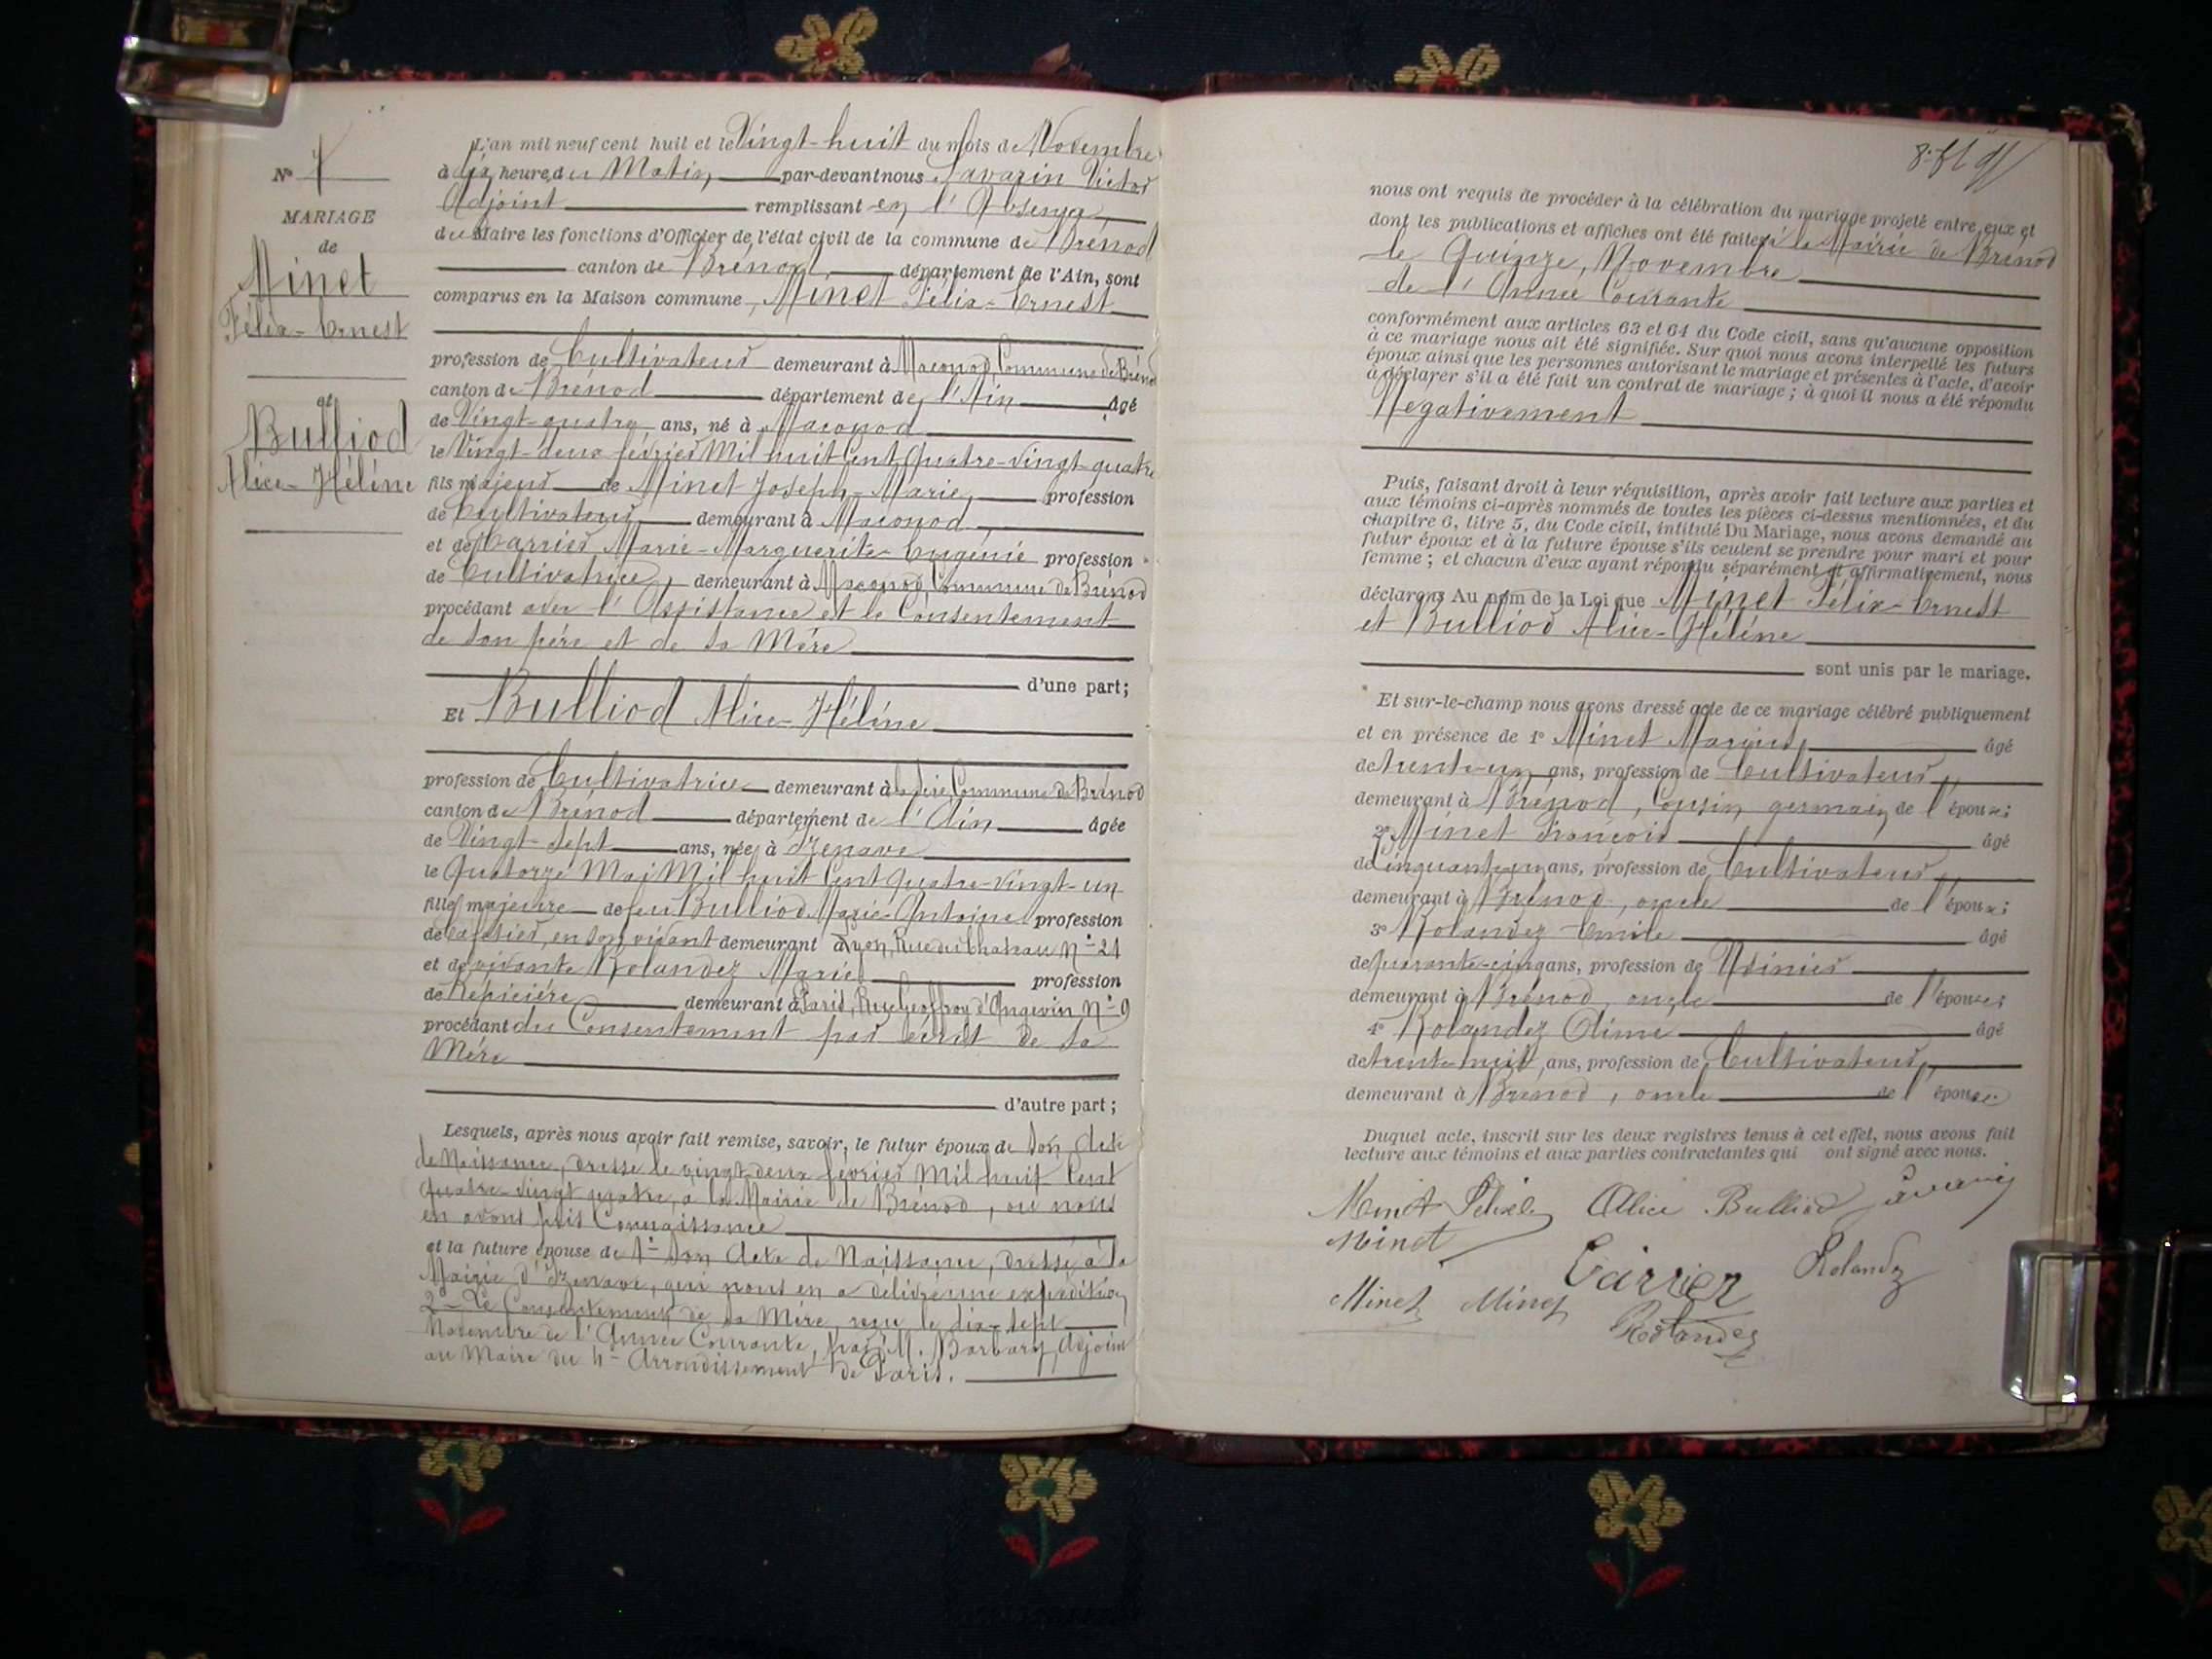 N° 7
MARIAGE
de
Minet
Félix-Ernest
et
Bulliod
Alice-Héléne
L'an mil neuf cent huit et le Vingt-huit du mois de Novembre
à dix heures du Matin par-devant nous Savarin Victor
Adjoint remplissant en l'Absence
du Maire les fonctions d'Officier de l'état civil de la commune de Brénod
canton de Brénod département de l'Ain, sont
comparus en la Maison commune, Minet Félix-Ernest
profession de Cultivateur demeurant à Maconod, Commune de Brénod
canton de Brénod département de l'Ain âgé
de Vingt-quatre ans, né à Maconod
le Vingt-deux février Mil huit Cent Quatre-vingt-quatre
fils majeur de Minet Joseph-Marie, profession
de Cultivateur demeurant à Maconod
et de Carrier Marie-Marguerite-Eugénie profession
de Cultivatrice, demeurant à Maconod Commune de Brénod
procédant avec l'Assistance et le Consentement
de son père et de sa Mére
d'une part;
Et Bulliod Alice-Héléne
profession de Cultivatrice demeurant à Commune de Brénod
canton de Brénod département de l'Ain âgée
de Vingt-sept ans, née à Izenave
le Quatorze Mai Mil huit Cent Quatre-vingt-un
fille majeure de feu Bulliod Marie-Antoine profession
de Cafetier, en son vivant demeurant à Lyon, Rue du Chateau N° 21
et de vivante Rolandez Marie profession
de Répiciére demeurant à Paris, Rue Geoffroy d'Angevin N° 9
procédant du Consentement par écrit de sa
Mére
d'autre part;
Lesquels, après nous avoir fait remise, savoir, le futur époux de son Acte
de Naissance, dressé le vingt-deux février Mil huit Cent
Quatre-vingt quatre, a la Mairie de Brénod, ou nous
en avons pris Connaissance
et la future épouse de 1° Son Acte de Naissance, dressé à la
Mairie d'Izenave, qui nous en a délivré une expédition
2° Le Consentement de sa Mére, reçu le dix-sept
Novembre de l'Année Courante, par M. Barbary, Adjoint
au Maire du 4° Arrondissement de Paris.
nous ont requis de procéder à la célébration du mariage projeté entre eux et
dont les publications et affiches ont été faites à la Mairie de Brénod
le Quinze, Novembre
de l'Année Courante
conformément aux articles 63 et 64 du Code civil, sans qu'aucune opposition
à ce mariage nous ait été signifiée. Sur quoi nous avons interpellé les futurs
époux ainsi que les personnes autorisant le mariage et présentes à l'acte, d'avoir
à déclarer s'il a été fait un contrat de mariage; à quoi il nous a été répondu
Négativement
Puis, faisant droit à leur réquisition, après avoir fait lecture aux parties et
aux témoins ci-après nommés de toutes les pièces ci-dessus mentionnées, et du
chapitre 6, titre 5, du Code civil, intitulé Du Mariage, nous avons demandé au
futur époux et à la future épouse s'ils veulent se prendre pour mari et pour
femme; et chacun d'eux ayant répondu séparément et affirmativement, nous
déclarons Au nom de la Loi que Minet Félix-Ernest
et Bulliod Alice-Héléne
sont unis par le mariage.
Et sur-le-champ nous avons dressé acte de ce mariage célébré publiquement
et en présence de 1° Minet Marius, âgé
de trente-un ans, profession de Cultivateur,
demeurant à Brénod, Cousin germain de l'époux;
2° Minet François âgé
de Cinquante-un ans, profession de Cultivateur,
demeurant à Brénod, oncle de l'époux;
3° Rolandez Emile âgé
de quarante-cinq ans, profession de Usinier
demeurant à Brénod, oncle de l'épouse;
4° Rolandez Aimé âgé
de trente-huit, ans, profession de Cultivateur,
demeurant à Brénod, oncle de l'épouse
Duquel acte, inscrit sur les deux registres tenus à cet effet, nous avons fait
lecture aux témoins et aux parties contractantes qui ont signé avec nous.
Minet Félix Alice Bulliod Savarin
Minet
Carrier Rolandez
Minet Minet
Rolandez